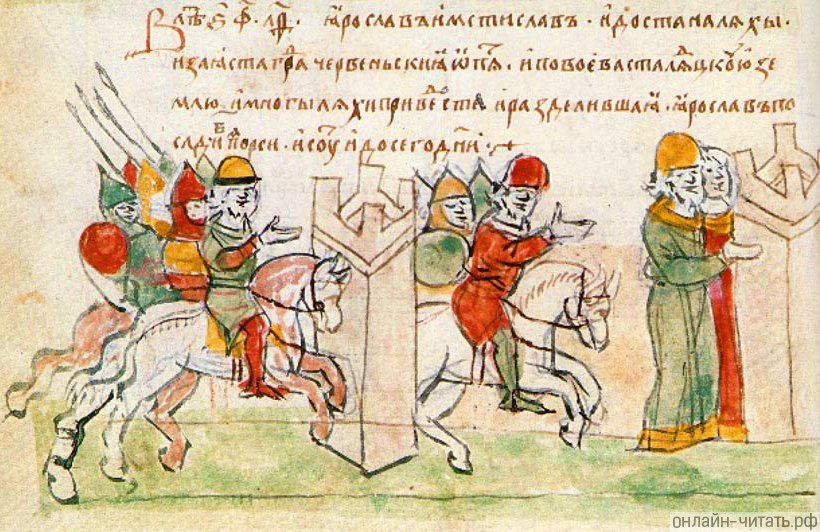 В лѣ ѕ҃ . ф҃ . ꙗрославъ и мстиславъ . идоста на ляхы .
и заꙗста гра червеньскиꙗ ѡпѧ . и повоеваста лѧцкою зе
млю . и многы ляхи приведоста и разделивша ꙗ . ꙗрославъ по
сади порси . и соу и до сего дни .
онлайн-читать.рф